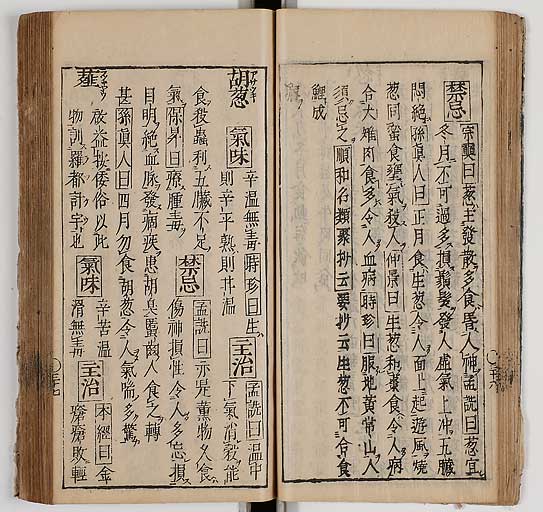 禁忌 宗奭曰葱主發散多食昏人神孟詵曰葱宜
冬月不可過多損鬚髮發人虛氣上冲五臟
悶絶孫眞人曰正月食生葱令人面上起遊風燒
葱同蜜食壅氣殺人仲景曰生葱和棗食令人病
合犬雉肉食多令人血病時珍曰服地黄常山人
須忌之順和名類聚抄云要抄云生葱不可合食
鯉成
胡葱 氣味 辛溫無毒時珍曰生
則辛平熟則甘溫 主治 孟詵曰溫中
下氣消穀能
食殺蟲利五臟不足
氣保昇曰療腫毒 禁忌 孟詵曰亦是薰物久食
傷神損性令人多忘損
目明絶血脉發痼疾患胡臭䘌齒人食之轉
甚孫眞人曰四月勿食胡葱令人氣喘多驚
薤 故 倭俗以此
物訓羅都計宇也 氣味 辛苦溫
滑無毒 主治 本經曰金
瘡瘡敗輕